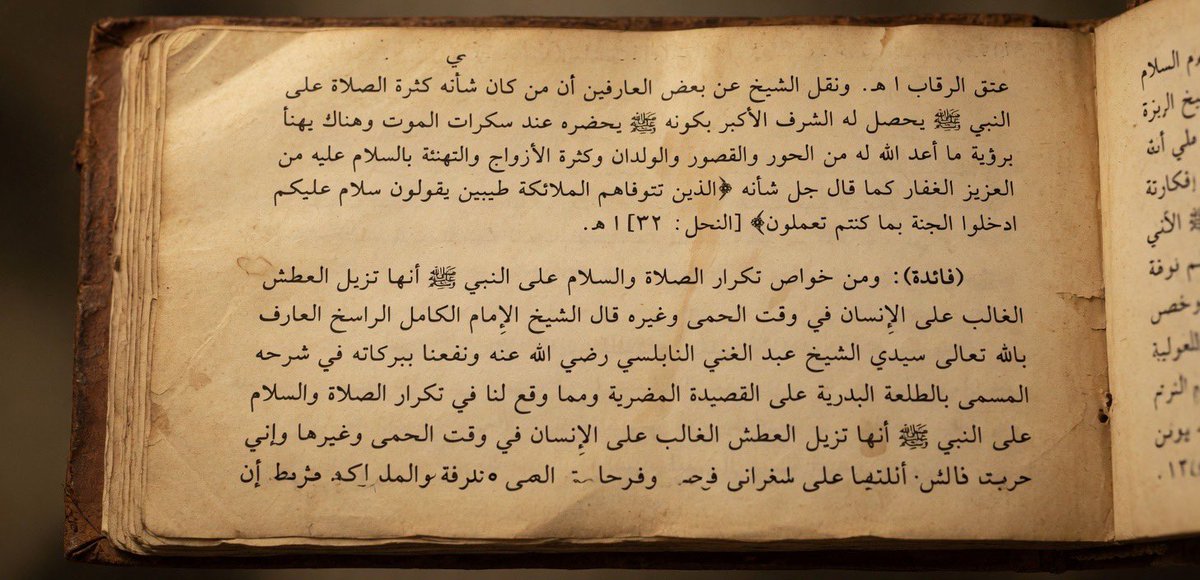 عتق الرقاب ا هـ. ونقل الشيخ عن بعض العارفين أن من كان شأنه كثرة الصلاة على
النبي ﷺ يحصل له الشرف الأكبر بكونه ﷺ يحضره عند سكرات الموت وهناك يهنأ
برؤية ما أعد الله له من الحور والقصور والولدان وكثرة الأزواج والتهنئة بالسلام عليه من
العزيز الغفار كما قال جل شأنه ﴿الذين تتوفاهم الملائكة طيبين يقولون سلام عليكم
ادخلوا الجنة بما كنتم تعملون﴾ [النحل: ٣٢] ا هـ.
(فائدة): ومن خواص تكرار الصلاة والسلام على النبي ﷺ أنها تزيل العطش
الغالب على الإنسان في وقت الحمى وغيره قال الشيخ الإمام الكامل الراسخ العارف
بالله تعالى سيدي الشيخ عبد الغني النابلسي رضي الله عنه ونفعنا ببركاته في شرحه
المسمى بالطلعة البدرية على القصيدة المضرية ومما وقع لنا في تكرار الصلاة والسلام
على النبي ﷺ أنها تزيل العطش الغالب على الإنسان في وقت الحمى وغيرها وإني
على
إن
السلام
الأني
نوفة